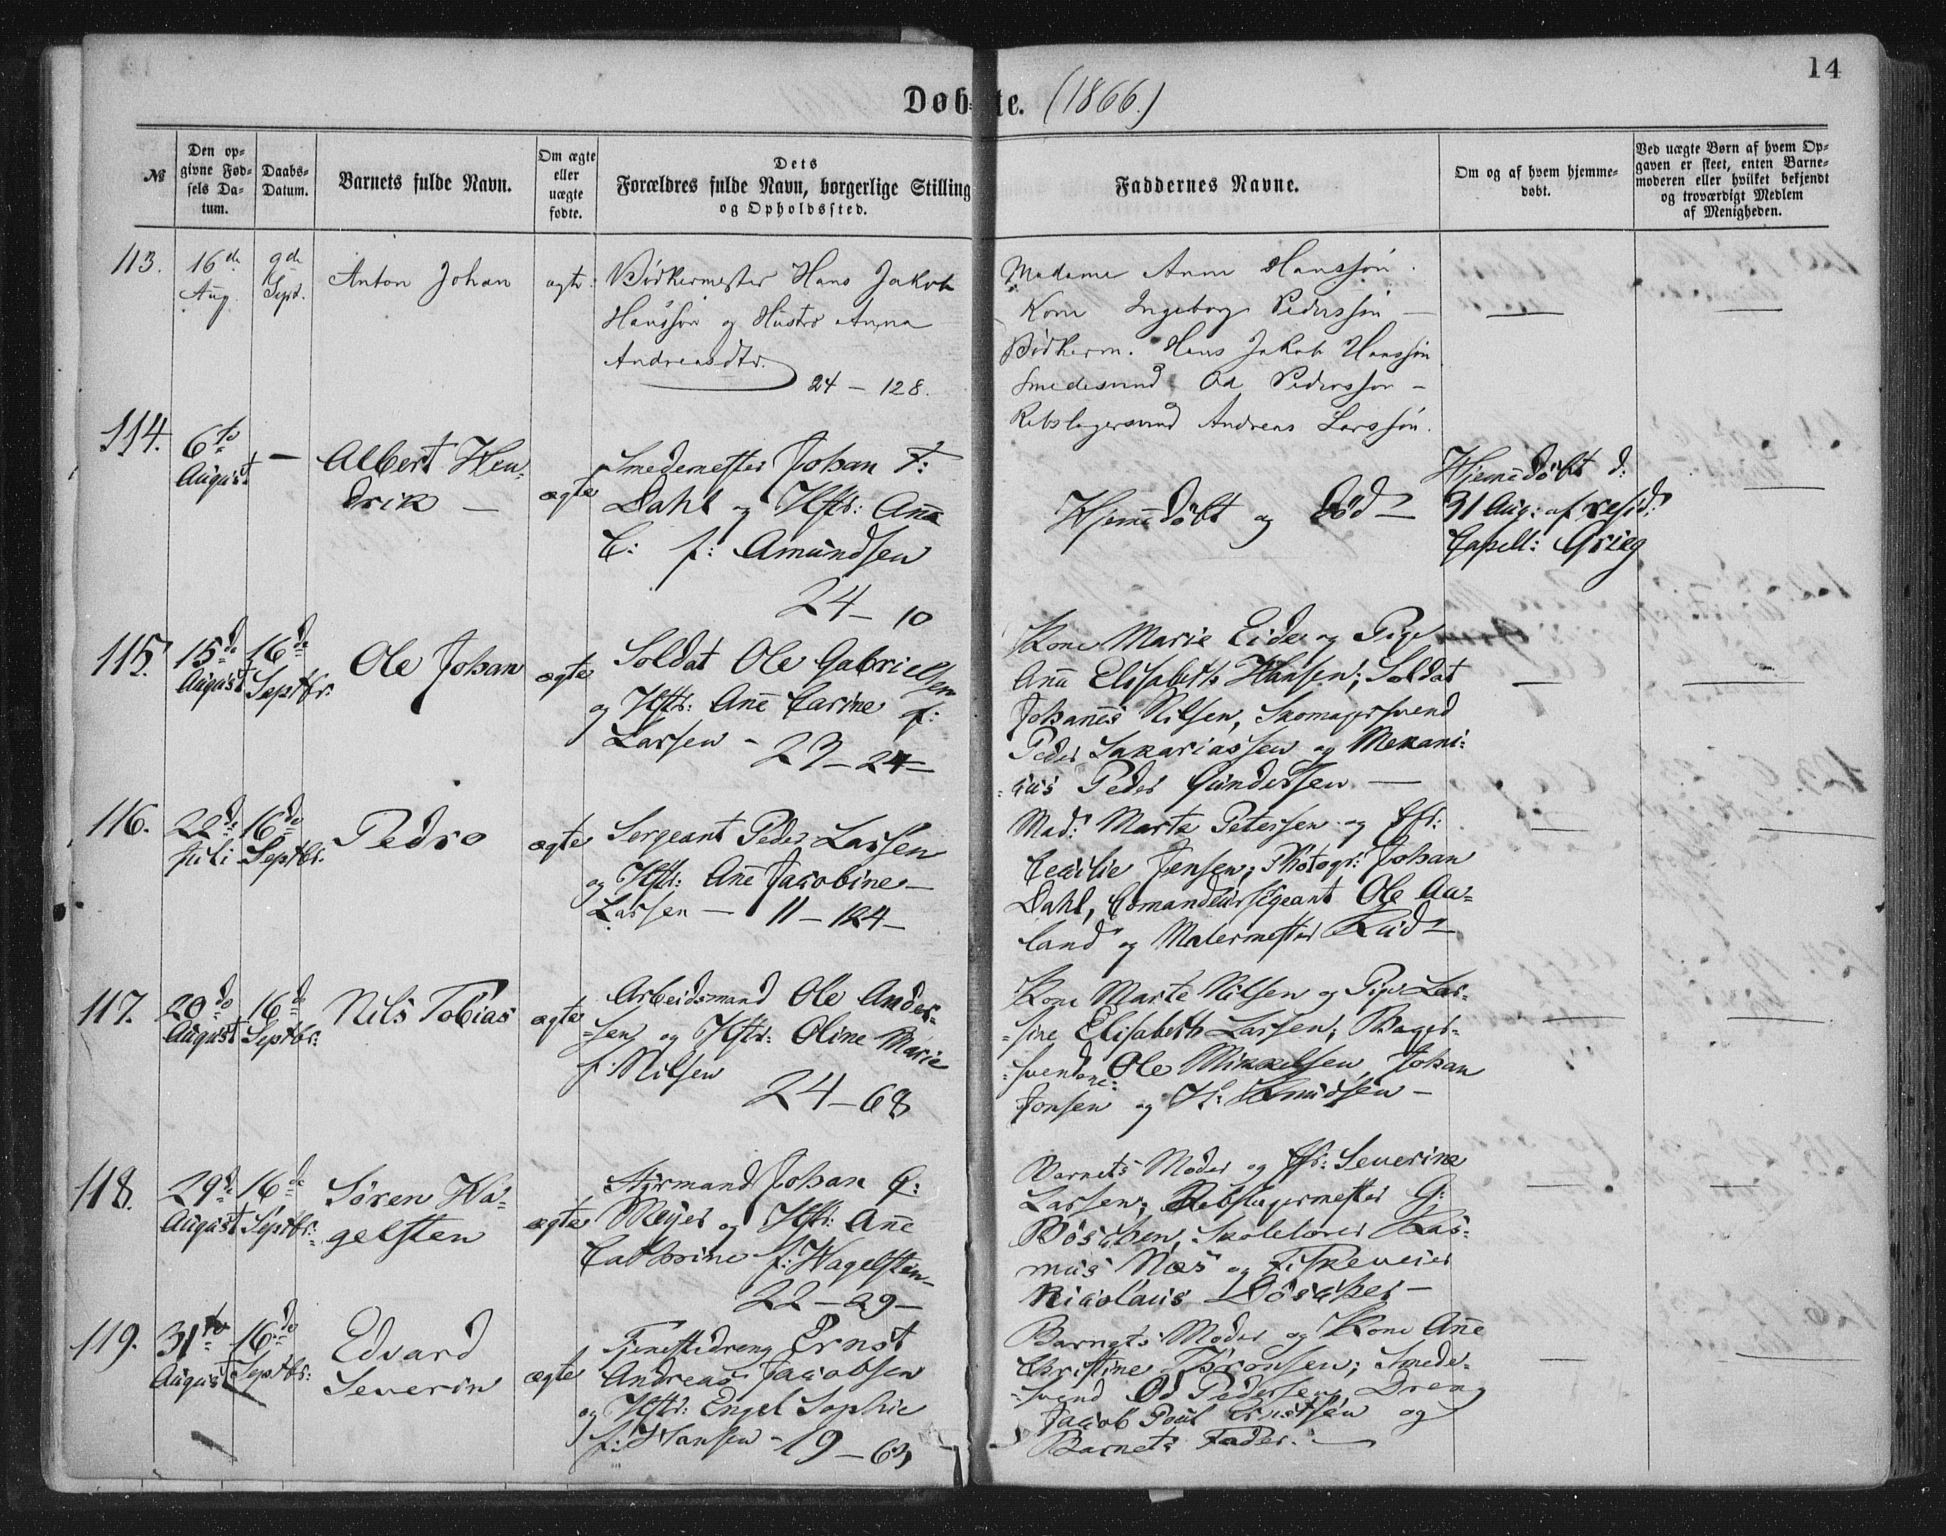 14
Døbte. (1866.)
№
Den op=
givne Fød=
sels Da=
tum.
Daabs=
Datum.
Barnets fulde Navn.
Om ægte
eller
uægte
fødte.
Dets
Forældres fulde Navn, borgerlige Stilling
og Opholdssted.
Faddernes Navne.
Om og af hvem hjemme=
døbt.
Ved uægte Børn af hvem Op=
gaven er skeet, enten Barne=
moderen eller hvilket bekjendt
og troværdigt Medlem
af Menigheden.
113.
16de
Aug.
9de
Sept.
Anton Johan
ægte
Bødkermester Hans Jakob
Hansson og Hustro Anna
Andreasdtr.
24 — 128.
Madame Anne Hansson.
Kone Ingeborg Pedersson —
Bødkerm. Hans Jakob Hansson
Smedesvend Od Pedersson —
Rebslagersvend Andreas Larsson.
114.
6te
August
—
Albert Hen=
drik —
ægte
Smedemester Johan F:
Dahl og Hstr: Anna
C: f: Amundsen
24 — 10
Hjemedøbt og død —
Hjemedøbt d:
31 Aug: af resid:
Capell: Grieg
115.
15de
August
16de
Septbr.
Ole Johan
ægte
Soldat Ole Gabrielsen
og Hstr: Ane Carine f:
Larsen — 23 — 24 —
Kone Marie Eide og Pige
Ana Elisabeth Hansen; Soldat
Johannes Nilsen, Skomagersvend
Peder Sakariassen og Mekani=
=cus Peder Gundersen —
116.
22de
Juli
16de
Septbr.
Pedro
ægte
Sergeant Peder Larsen
og Hstr: Ane Jacobine —
Larsen — 11 — 124 —
Mad: Marte Petersen og Jfr:
Cecilie Jensen, Photogr: Johan
Dahl, Comandeursergeant Ole Au=
land og Malermester Lud —
117.
20de
August
16de
Septbr:
Nils Tobias
ægte
Arbeidsmand Ole Ander=
=sen og Hstr: Oline Marie
f: Nilsen
24 — 68
Kone Marte Nilsen og Pige Lar=
=sine Elisabeth Larsen; Bager=
=svendene: Ole Mikkelsen, Johan
Jonsen og H: Knudsen —
118.
29de
August
16de
Septbr:
Søren Wa=
gelsten
ægte
Styrmand Johan G:
Meyer og Hstr: Ane
Cathrine f: Wagelsten
22 — 29 —
Barnets Moder og Jfr: Severine
Larsen; Rebslagermester G:
Bøscher, Skolelærer Ras=
mus Næs og Fiskeveier
Nicolaus Bøscher —
119.
31te
August
16de
Septbr:
Edvard
Severin
ægte
Tjenestedreng Ernst
Andreas Jacobsen
og Hstr: Engel Sophie
f: Hansen — 19 — 63
Barnets Moder og Kone Ane
Christine Thronsen; Smede=
=svend Od Pedersen, Dreng
Jacob Poul Ernstsen og
Barnets Fader. —